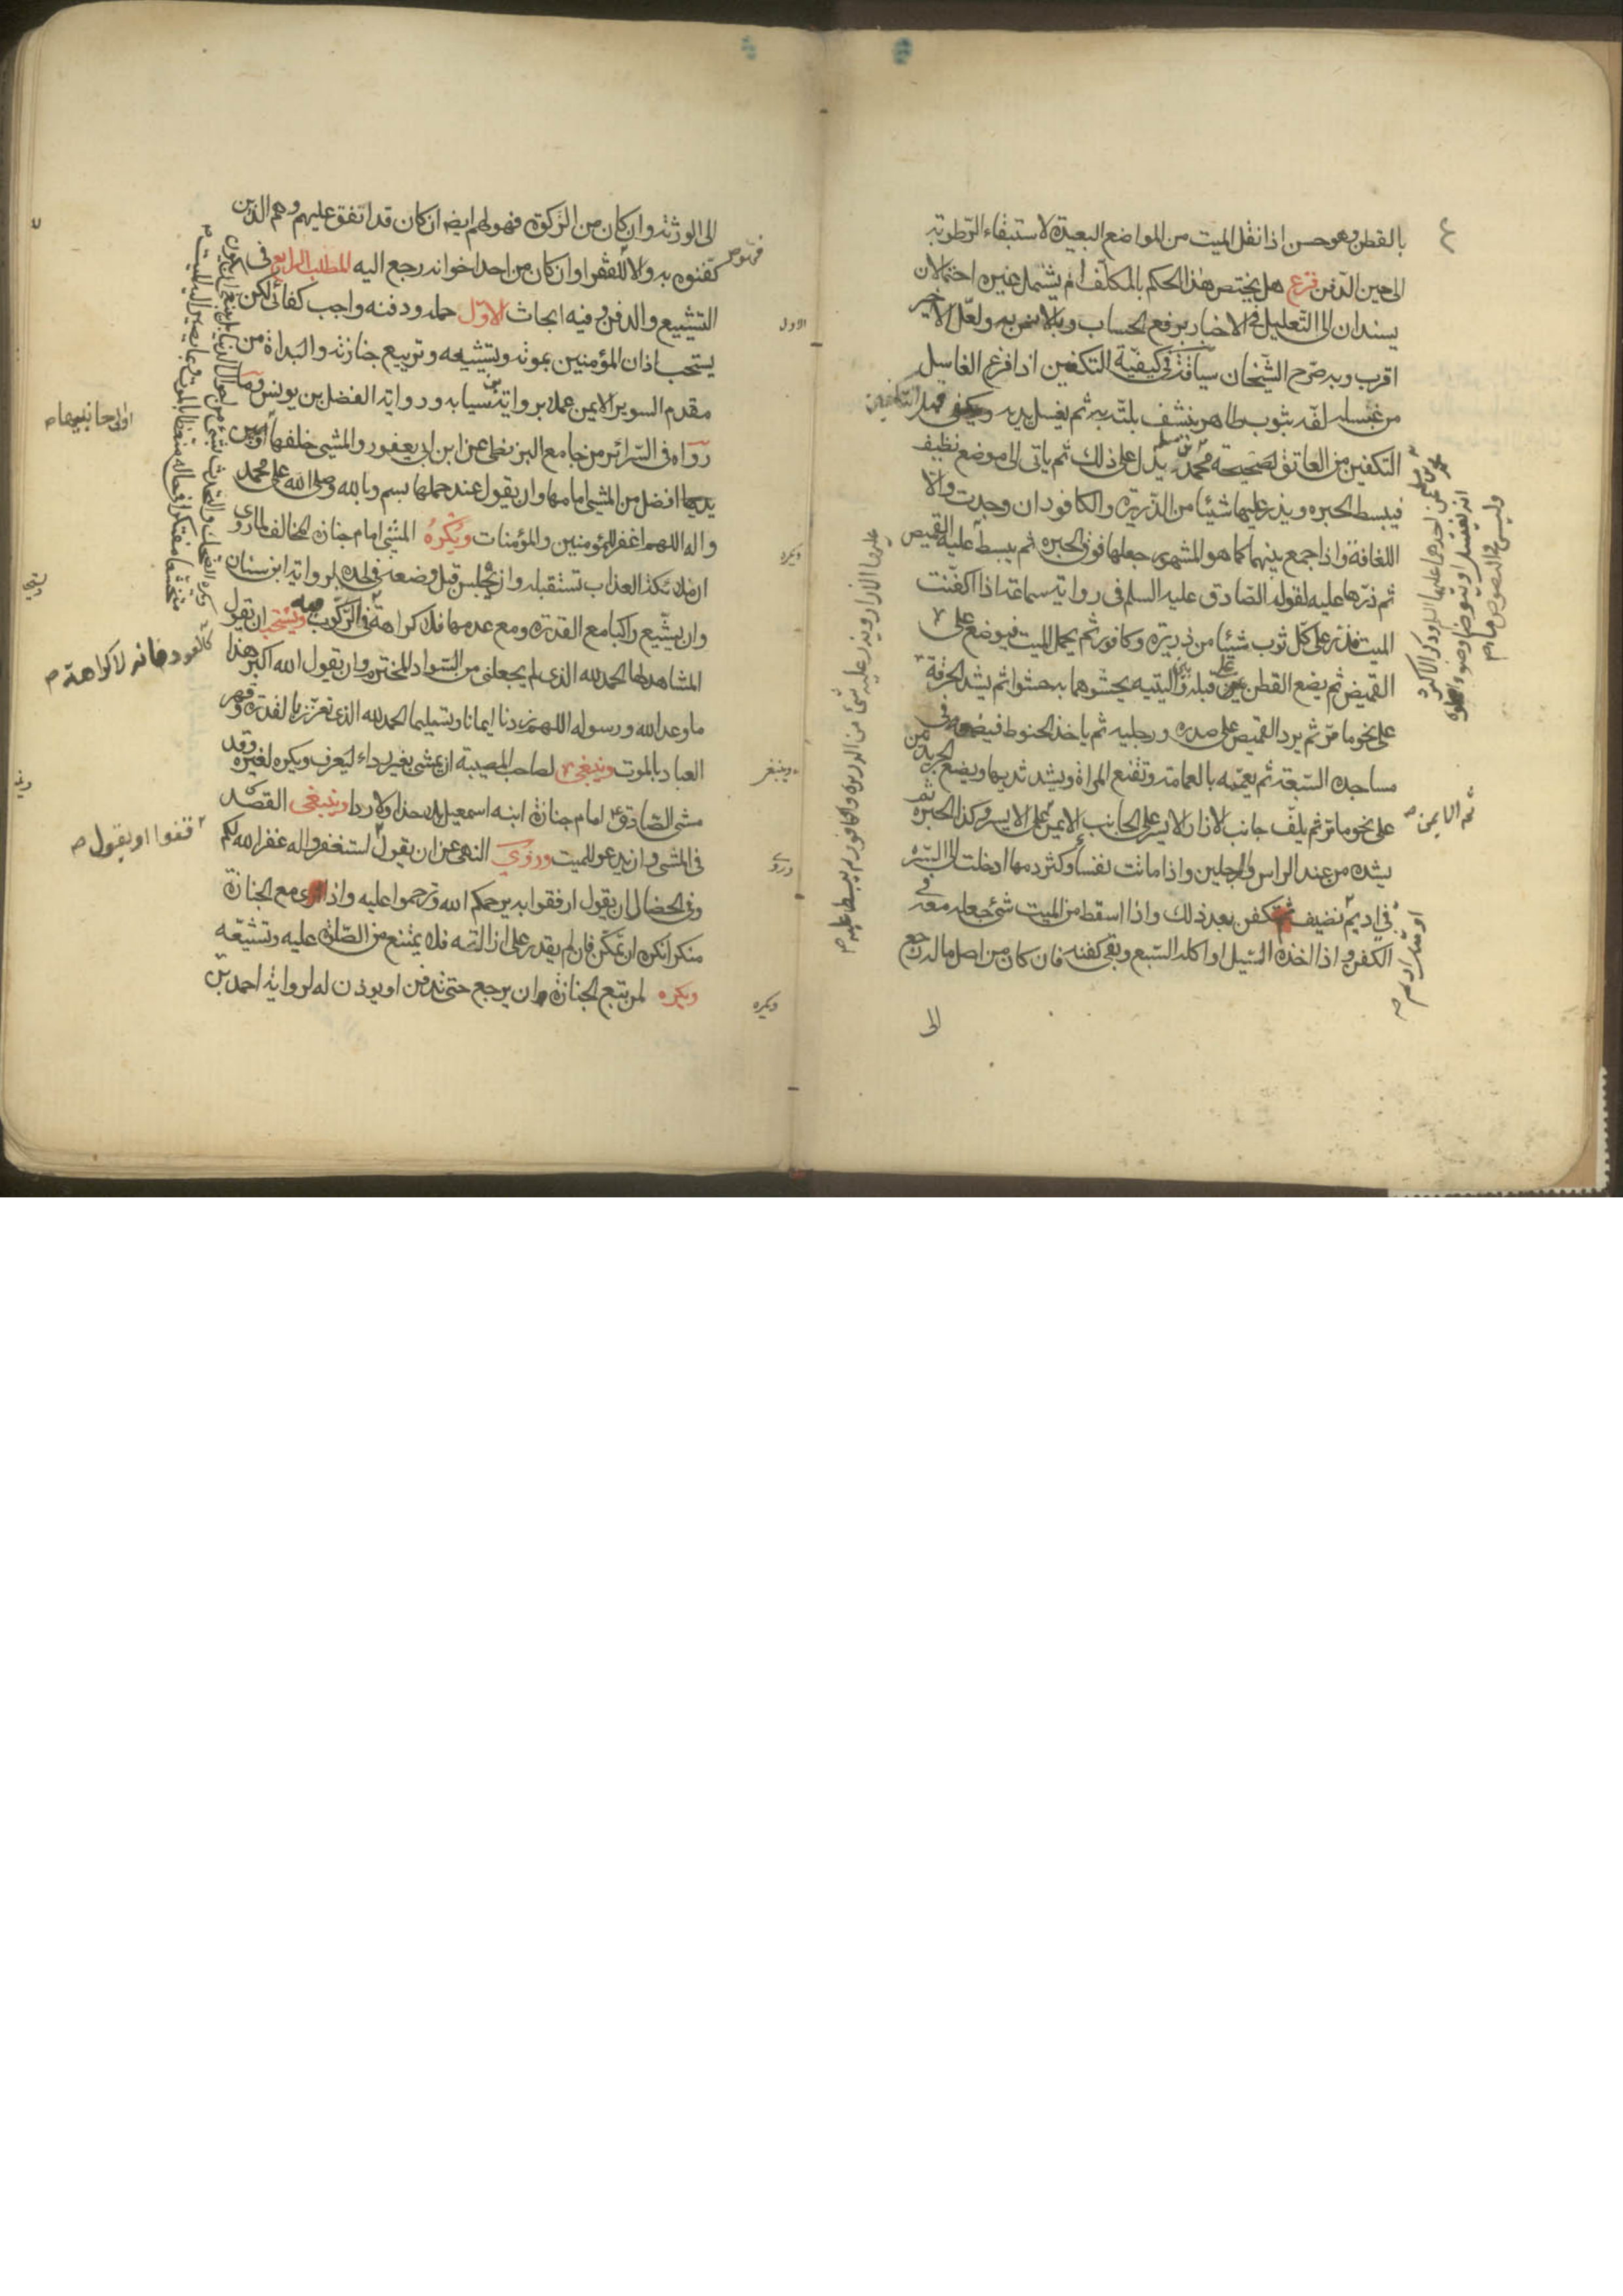 بالقطن وهو حسن اذا نقل الميت من المواضع البعيدة لاستبقاء الرطوبة
الى حين الدفن فرع هل يختص هذا الحكم بالمكلف ام يشمل غيره احتمالان
يسندان الى التعليل في الاخبار برفع الحساب وبلا ولعل الاخير
اقرب وبه صرح الشيخان في كيفية التكفين اذا فرغ الغاسل
من غسله لفه بثوب طاهر ينشف بلته به ثم يغسل يديه
التكفين من العاتق لصحيحة محمد بن مسلم يدل على ذلك ثم ياتى الى موضع نظيف
فيبسط الحبره ويذر عليها شيئا من الذريرة والكافور ان وجدت والا
اللفافة واذا جمع بينهما كما هو المشهور جعلها فوق الحبره ثم يبسط عليه القميص
ثم ذرها عليه لقوله الصادق عليه السلم فى رواية سماعة اذا اكفنت
الميت فذر على كل ثوب شيئا من ذريرة وكافور ثم يحمل الميت فيوضع على
القميص ثم يضع القطن على قبله وبين اليتيه يحشوهما به حشوا ثم يشد الخرقة
على نحو ما مر ثم يرد القميص على صدره ورجليه ثم ياخذ الحنوط فيضعه فى
مساجده السبعة ثم يعممه بالعمامة وتقنع المراة ويشد ثدييها ويضع الجريدتين
على نحو ما مر ثم يلف جانب الازار الايسر على الجانب الايمن على الايسر وكذا الحبره ثم
يشده من عند الراس والرجلين واذا ماتت نفساء وكثر دمها ادخلت الى السره
فى اديم نضيف ثم تكفن بعد ذلك واذا اسقط من الميت شئ جعله معه فى
الكفن واذا اخذه السيل او اكله السبع وبقى كفنه فان كان من اصل ماله رجع
الى
ثم الايمن صح
عليها الازار ويذر عليه شئ من الذريرة والكافور ثم يبسط عليه صح
وليس فى النصوص
الى الورثة وان كان من الزكوة فهو لهم ايضا ان كان قد اتفق عليهم وهم الذين
كفنوه به والا للفقرا وان كان من احد اخوانه رجع اليه المطلب الرابع فى
التشييع والدفن وفيه ابحاث الاول حمله ودفنه واجب كفائى لكن
يستحب اذان المؤمنين بموته وتشييعه وتربيع جنازته والبداة من
مقدم السرير الايمن عملا برواية بن سيابه ورواية الفضل بن يونس وما
رواه فى السرائر من جامع البزنطى عن ابن ابى يعفور والمشى خلفها او بين
يديها افضل من المشى امامها وان يقول عند حملها بسم وبالله وصلى الله على محمد
واله اللهم اغفر للمؤمنين والمؤمنات ويكره المشى امام جنازة المخالف لما روى
ان ملائكة العذاب تستقبله وان يجلس قبل وضعه فى لحده لرواية ابن سنان
وان يشيع راكبا مع القدرة ومع عدمها فلا كراهة فى الركوب ويستحب ان يقول
المشاهد لها الحمد لله الذى لم يجعلنى من السواد المخترم وان يقول الله اكبر هذا
ما وعد الله ورسوله اللهم زدنا ايمانا وتسليما الحمد لله الذى تعزز بالقدرة وقهر
العباد بالموت وينبغى لصاحب المصيبة ان يمشى بغير رداء ليعرف ويكره لغيره وقد
مشى الصادق امام جنازة ابنه اسمعيل بلا حذاء ولا ردا وينبغى القصد
فى المشى وان يدعو للميت وروى النهى عن ان يقول استغفروا له غفر الله لكم
وفى الخصال ان يقول ارفقوا به يرحمكم الله وترحموا عليه واذا راى مع الجنازة
منكرا انكره ان تمكن فان لم يقدر على ازالته فلا يمتنع من الصلوة عليه وتشييعه
ويكره لمن تبع الجنازة ان يرجع حتى تدفن او يوذن له لرواية احمد بن
الاول
ويكره
وينبغى
وروى
ويكره
او الى جانبيها صح
كالعود فانه لا كراهة صح
قفوا او يقول صح